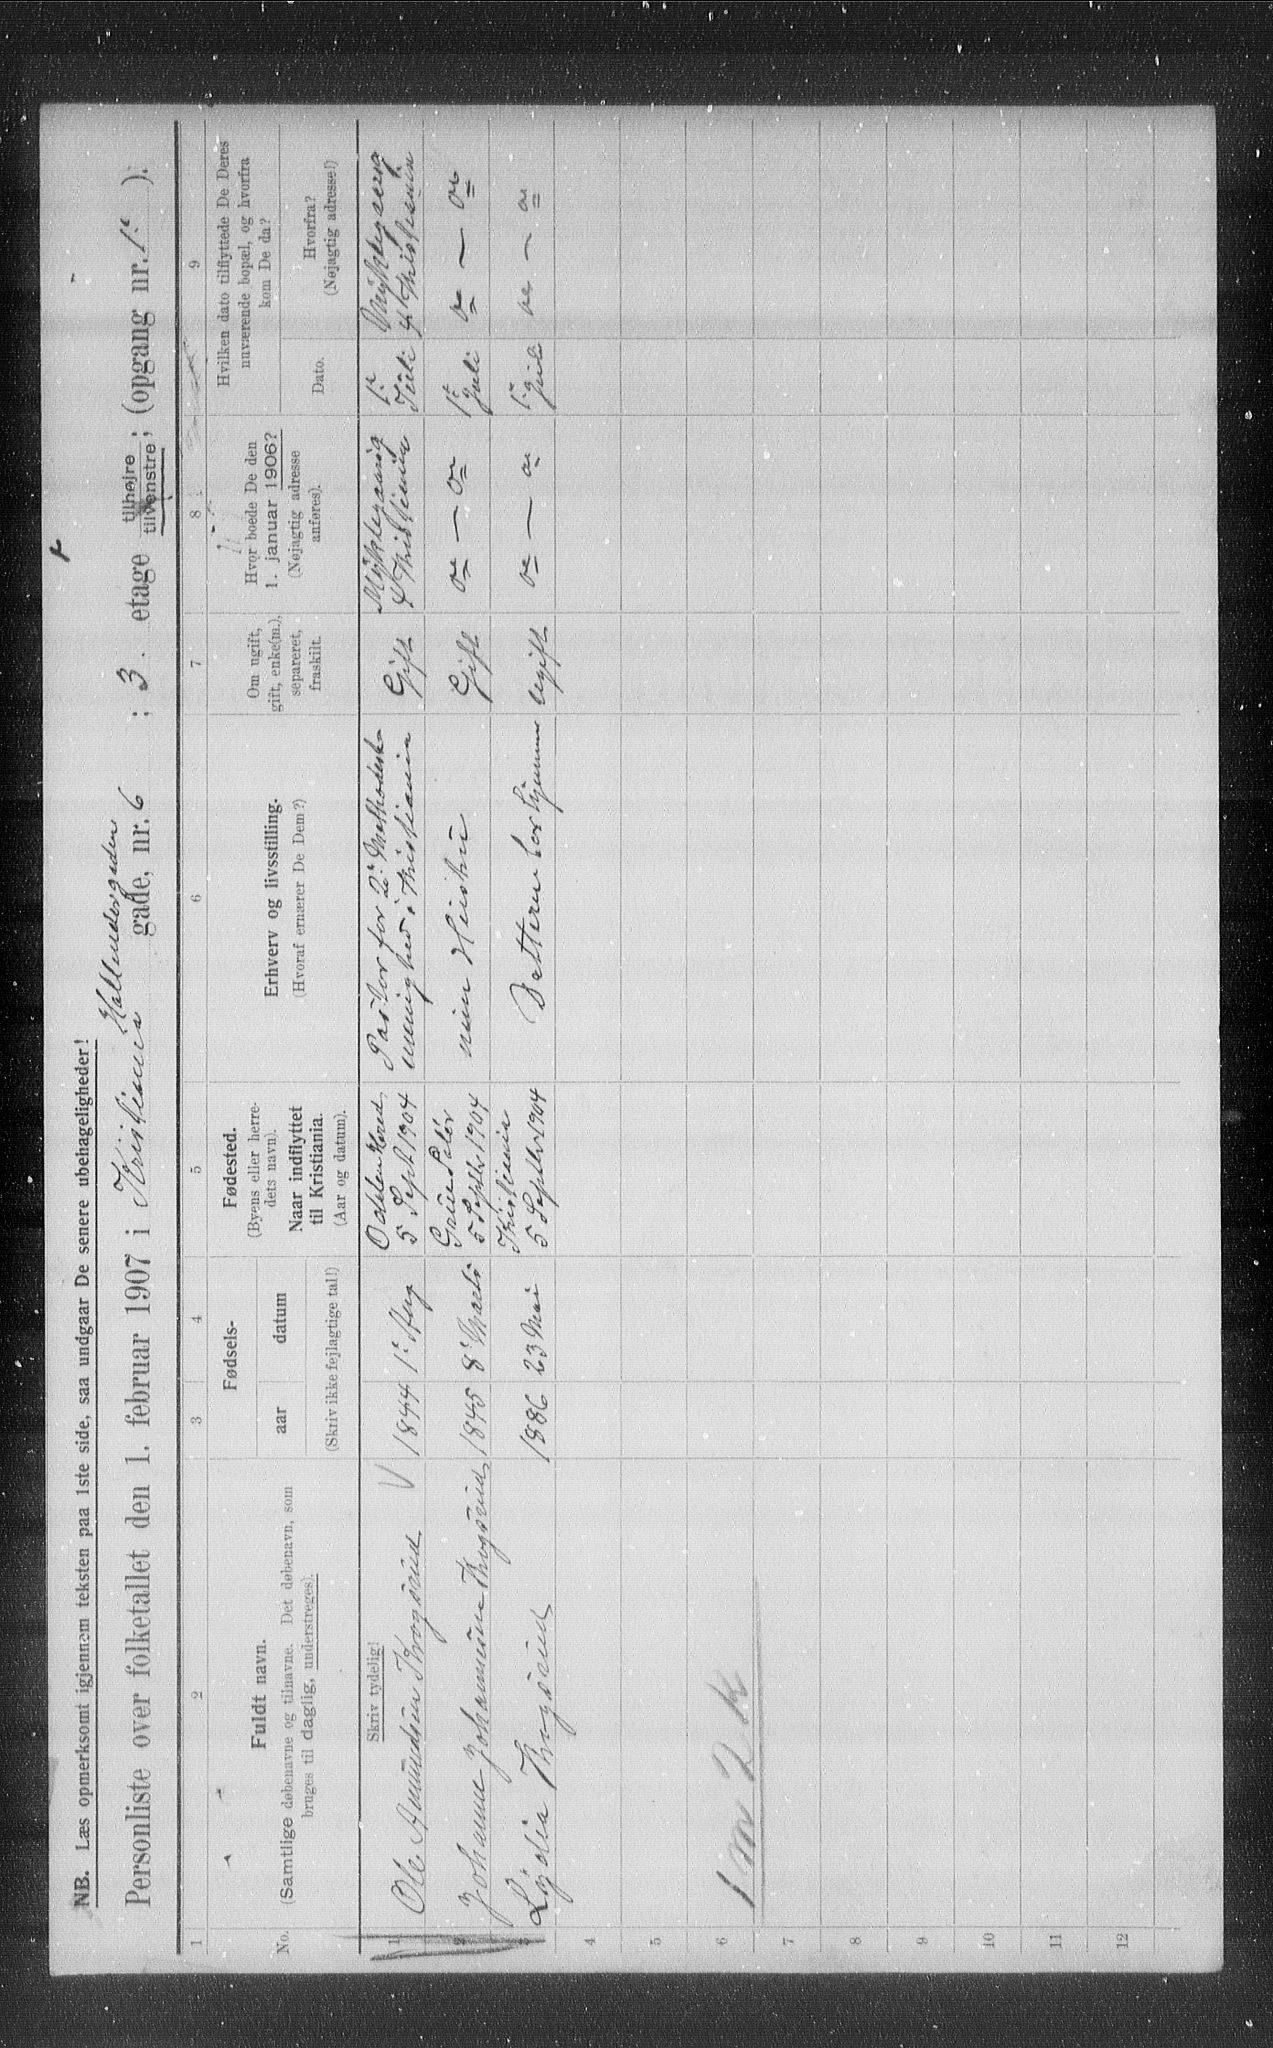 NB. Læs opmerksomt igjennem teksten paa 1ste side, saa undgaar De senere ubehageligheder!
Personliste over folketallet den 1. februar 1907 i Kristiania gade, nr. 6 ; 3. etage tilhøjre tilvenstre; (opgang nr. 1.).
1 2 3 4 5 6 7 8 9
No.
Fuldt navn.
(Samtlige døbenavne og tilnavne. Det døbenavn, som
bruges til daglig, understreges).
Skriv tydelig!
Fødsels-
aar
datum
(Skriv ikke fejlagtige tal!)
Fødested.
(Byens eller herre-
dets navn).
Naar indflyttet
til Kristiania.
(Aar og datum).
Erhverv og livsstilling.
(Hvoraf ernærer De Dem?)
Om ugift,
gift, enke(m.),
separeret,
fraskilt.
Hvor boede De den
1. januar 1906?
(Nøjagtig adresse
anføres).
Hvilken dato tilflyttede De Deres
nuværende bopæl, og hvorfra
kom De da?
Dato.
Hvorfra?
(Nøjagtig adresse!)
1
Ole Amundsen Krogsrud
1844
1. Aug
Odalen Hered.
5 Sept 1904
Pastor for 2. Methodist-
menighed i Kristiania
Gift
1. Juli
2
Johanne Johannesen Krogsrud
1845
8. Marts
Grue Solør
5 Septbr 1904
min Hustru
Gift
1. Juli
3
Lydia Krogsrud
1886
23 Mai
Kristiania
5 Septbr 1904
Datteren
Ugift
1. Juli
4
5
6
7
8
9
10
11
12
1 m 2 k